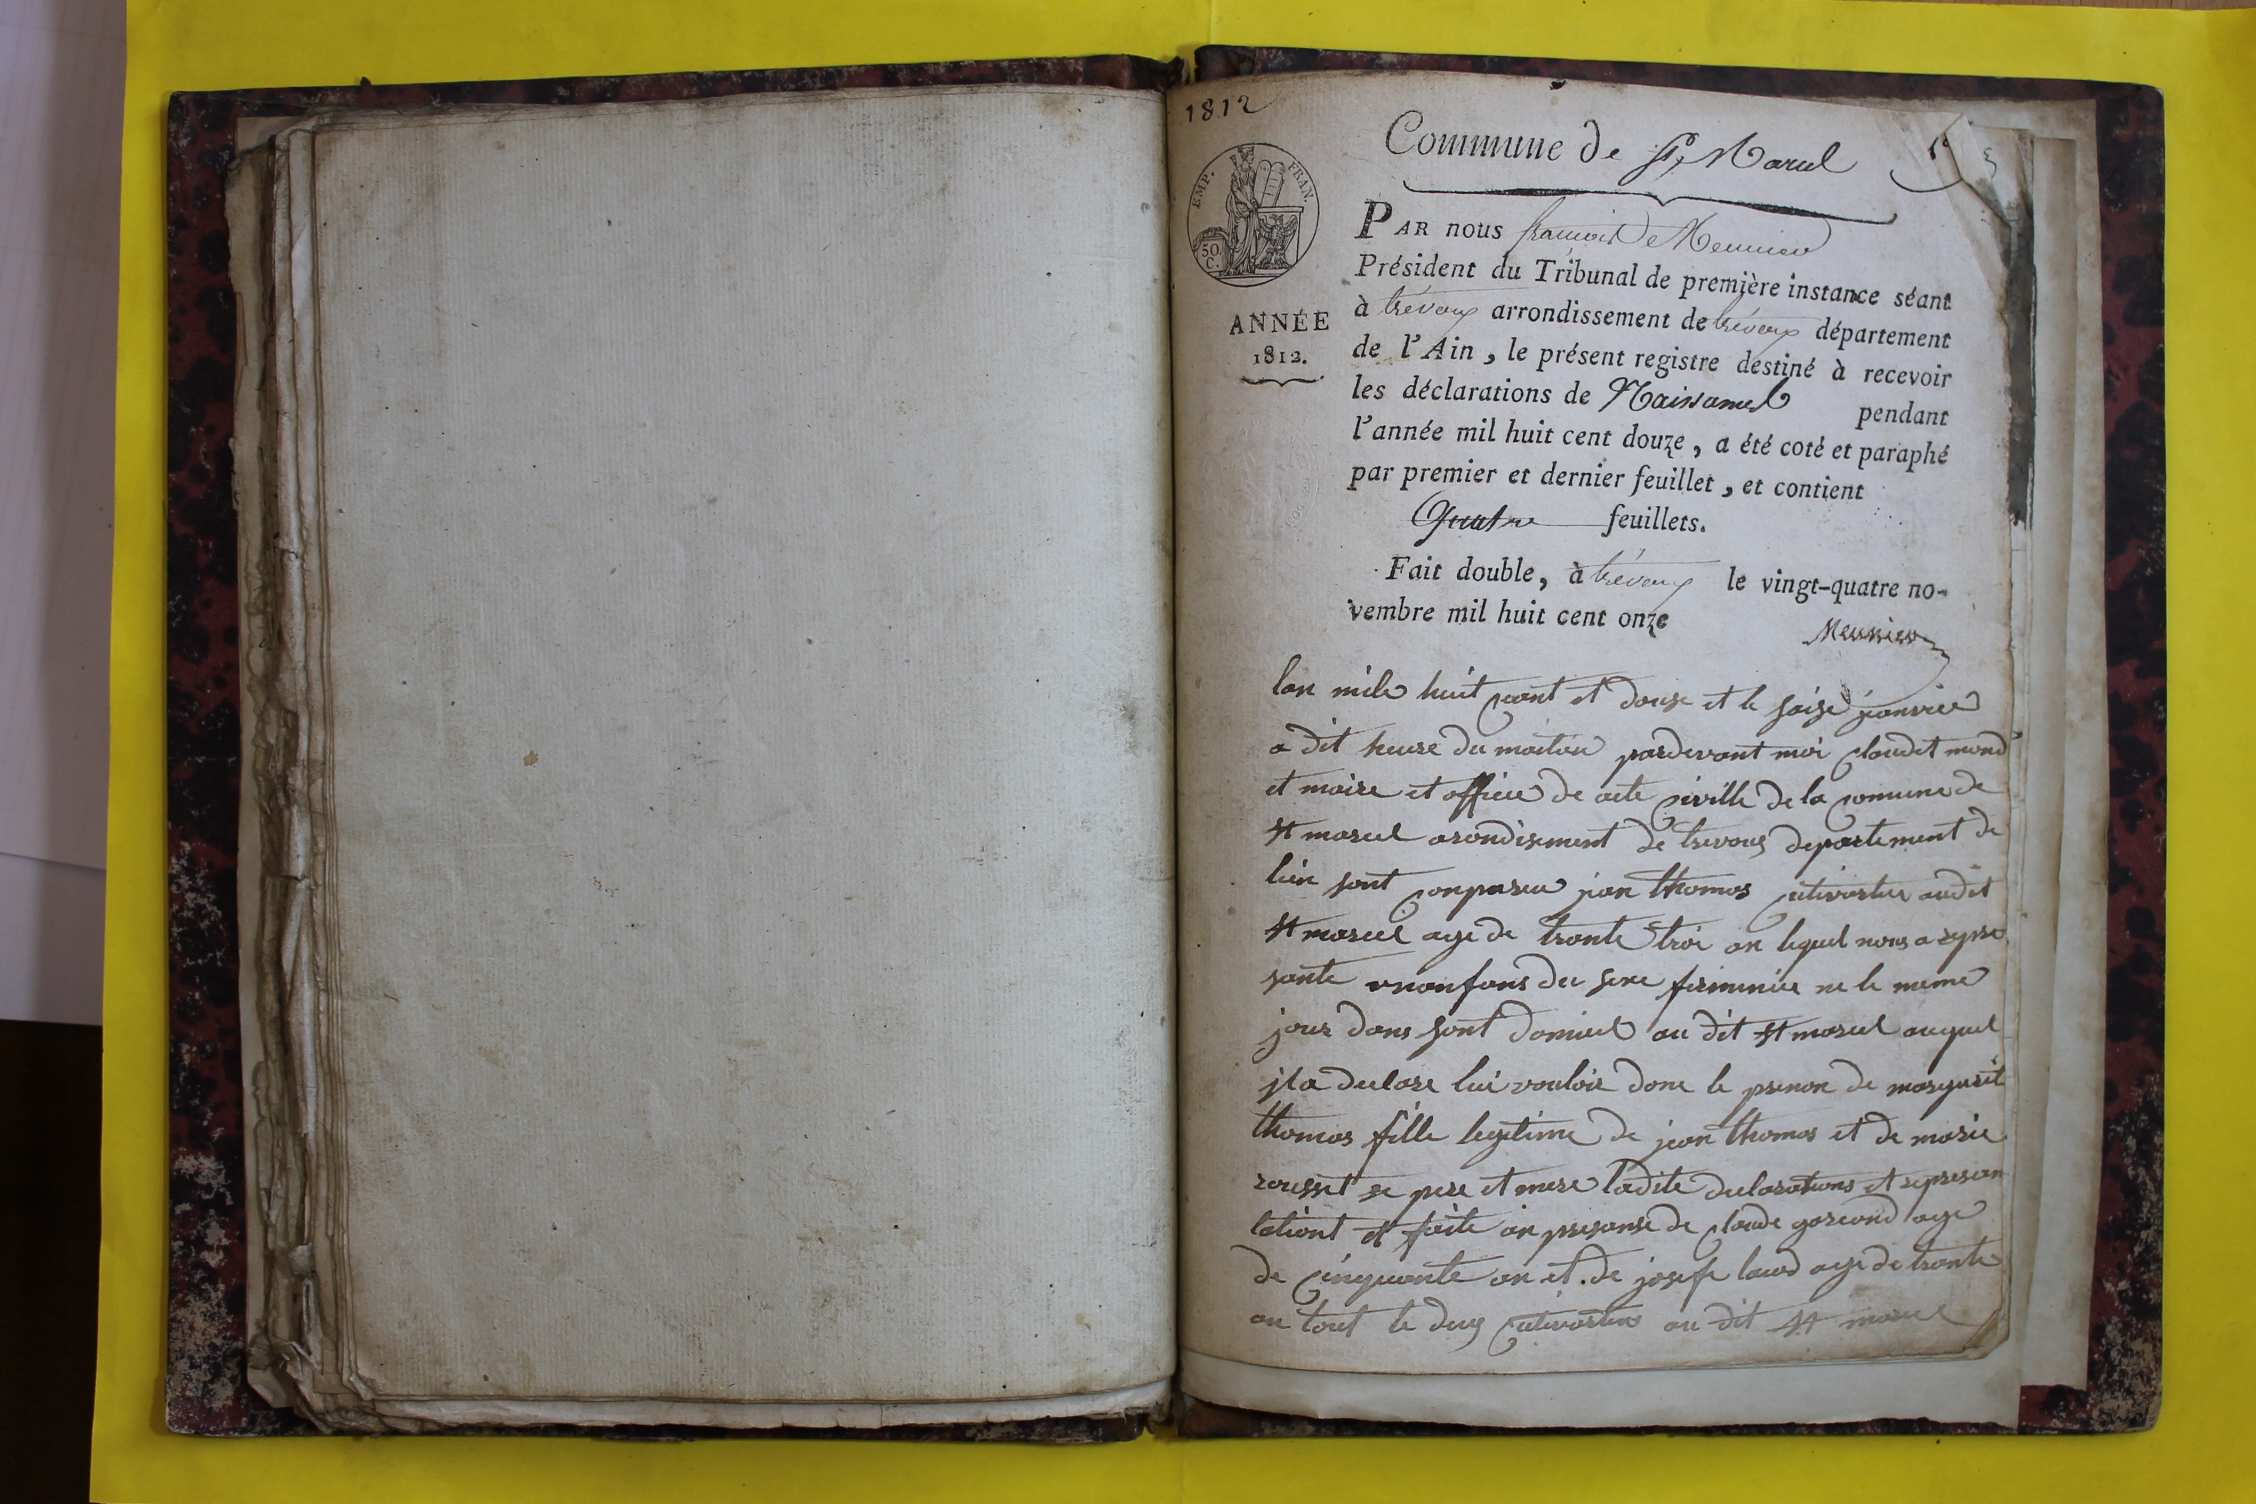 1812
Commune de St Marcel
EMP. FRAN.
50 C.
ANNÉE
1812.
PAR nous françois Meunier
Président du Tribunal de première instance séant
à trévoux arrondissement de trévoux département
de l'Ain, le présent registre destiné à recevoir
les déclarations de Naissances pendant
l'année mil huit cent douze, a été coté et paraphé
par premier et dernier feuillet, et contient
Quatre feuillets.
Fait double, à trévoux le vingt-quatre no-
vembre mil huit cent onze
Meunier
lan mile huit cent et douze et le saize janvier
a dit heure du maitin pardevant moi claude
et maire et officie de acte civille de la comune de
st marcel arondisement de trevoux departement de
lin sont conparu jan thomas cutivateur audit
st marcel age de trante troi an lequel nous a repre
sante unanfans du sexe feminin ne le meme
jour dans sont domicil au dit st marcel auquel
jl a declare lui vouloir done le prenon de margurit
thomas fille legitime de jean thomas et de marie
rousset se pere et mere ladite declarations et represan
tationt et faite an presanse de claude age
de cinquante an et de josefe age de trante
an tout le deux cutivateur au dit st marcel